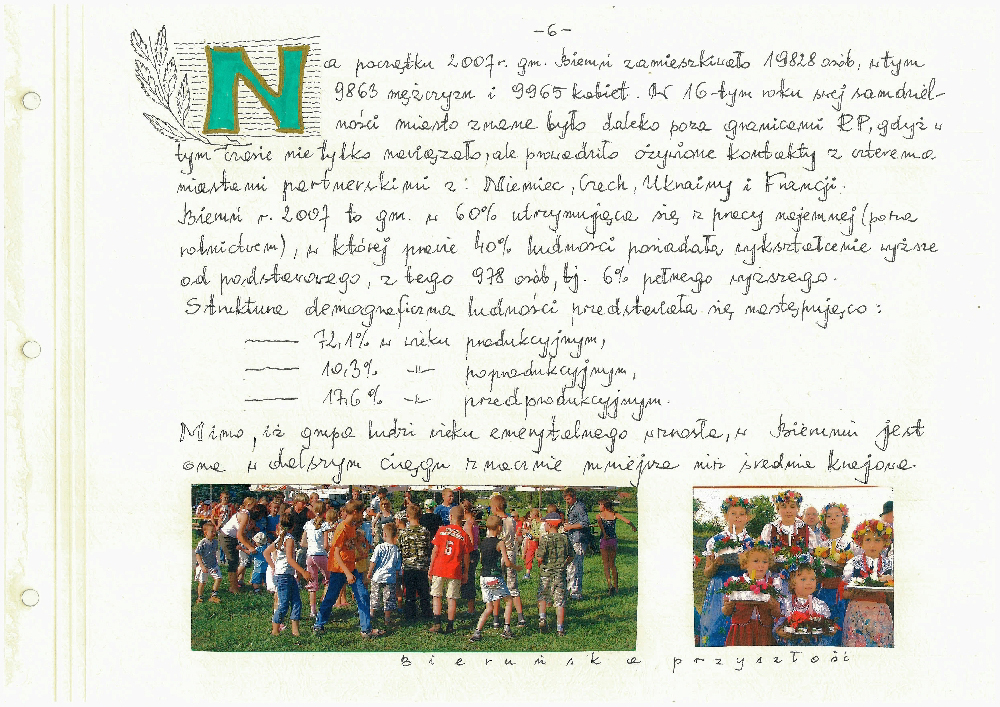 -6-
Na początku 2007 r. gm. Bieruń zamieszkiwało 19828 osób, w tym
9863 mężczyzn i 9965 kobiet. W 16-tym roku swej samodziel-
ności miasto znane było daleko poza granicami RP, gdyż w
tym czasie nie tylko nawiązało, ale prowadziło ożywione kontakty z czterema
miastami partnerskimi z: Niemiec, Czech, Ukrainy i Francji.
Bieruń r. 2007 to gm. w 60% utrzymująca się z pracy najemnej (poza
rolnictwem), w której prawie 40% ludności posiadała wykształcenie wyższe
od podstawowego, z tego 978 osób, tj. 6% pełnego wyższego.
Struktura demograficzna ludności przedstawiała się następująco:
—— 72,1% w wieku produkcyjnym,
—— 10,3% -"- poprodukcyjnym,
—— 17,6% -"- przedprodukcyjnym.
Mimo, iż grupa ludzi wieku emerytalnego wzrosła, w Bieruniu jest
ona w dalszym ciągu znacznie mniejsza niż średnia krajowa.
Bieruńska przyszłość